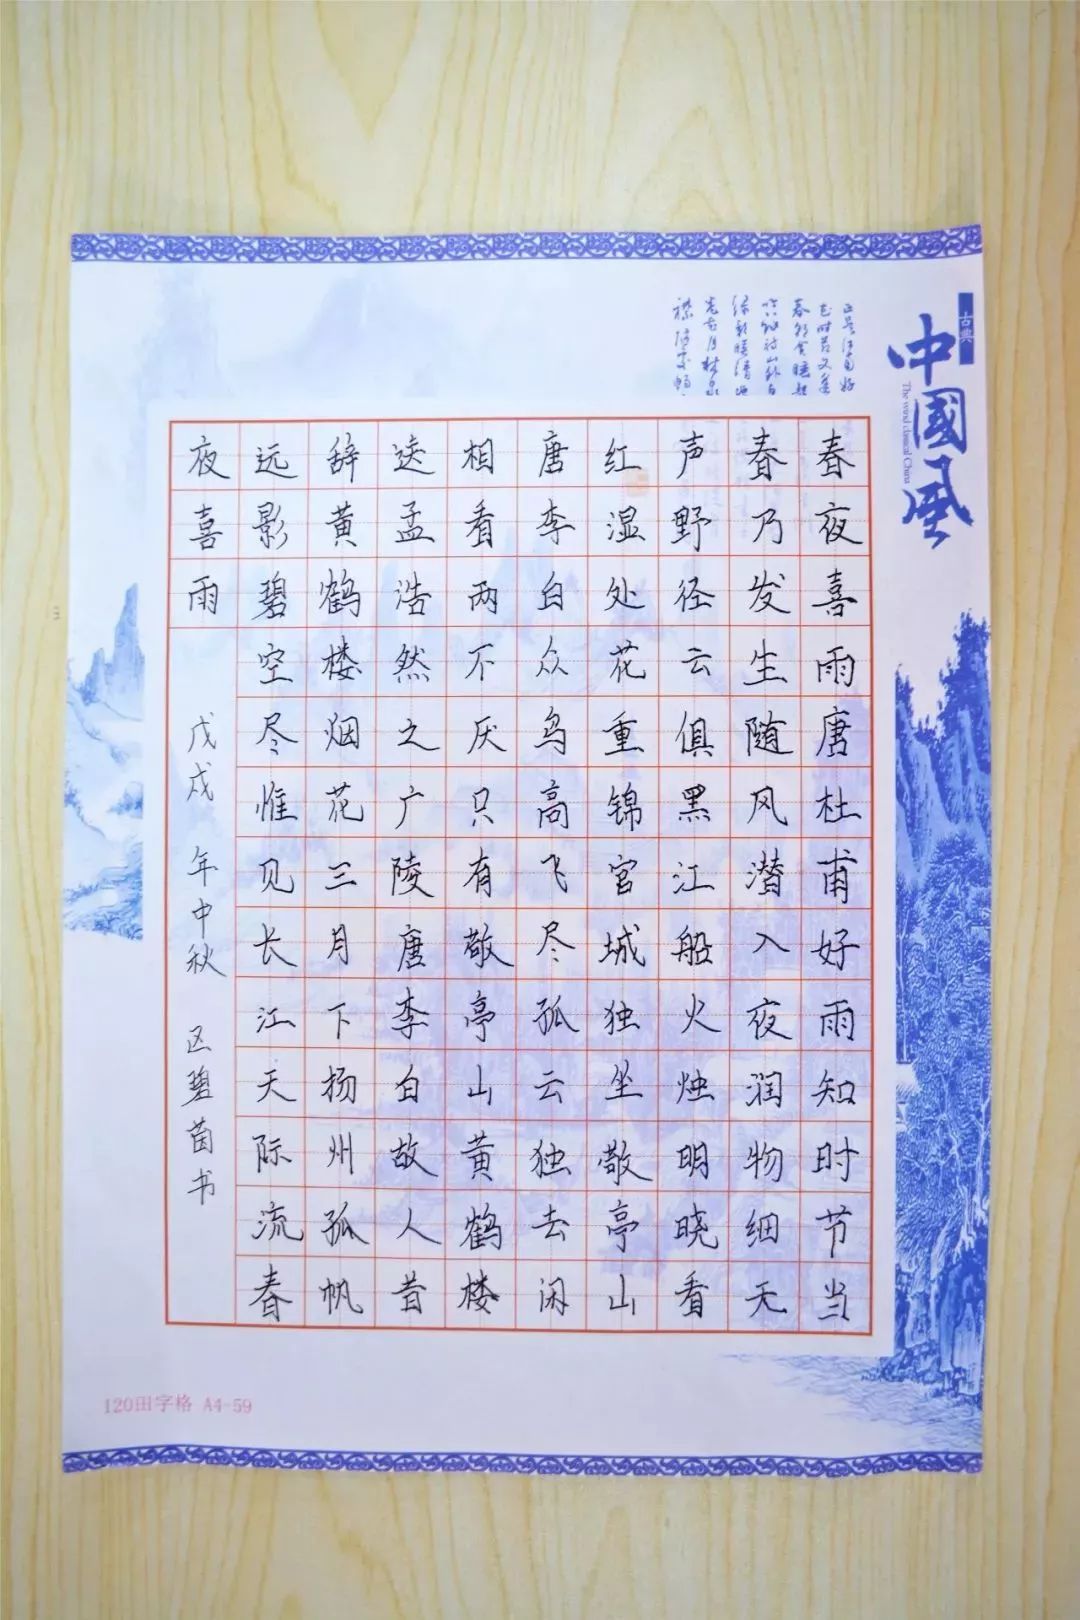 古典
中國风
The wind classical China
春夜喜雨唐杜甫好雨知时节当
春乃发生随风潜入夜润物细无
声野径云俱黑江船火烛明晓看
红湿处花重锦宫城独坐敬亭山
唐李白众鸟高飞尽孤云独去闲
相看两不厌只有敬亭山黄鹤楼
送孟浩然之广陵唐李白故人昔
辞黄鹤楼烟花三月下扬州孤帆
远影碧空尽惟见长江天际流春
夜喜雨
戊戌年中秋 区碧茵书
120田字格 A4-59